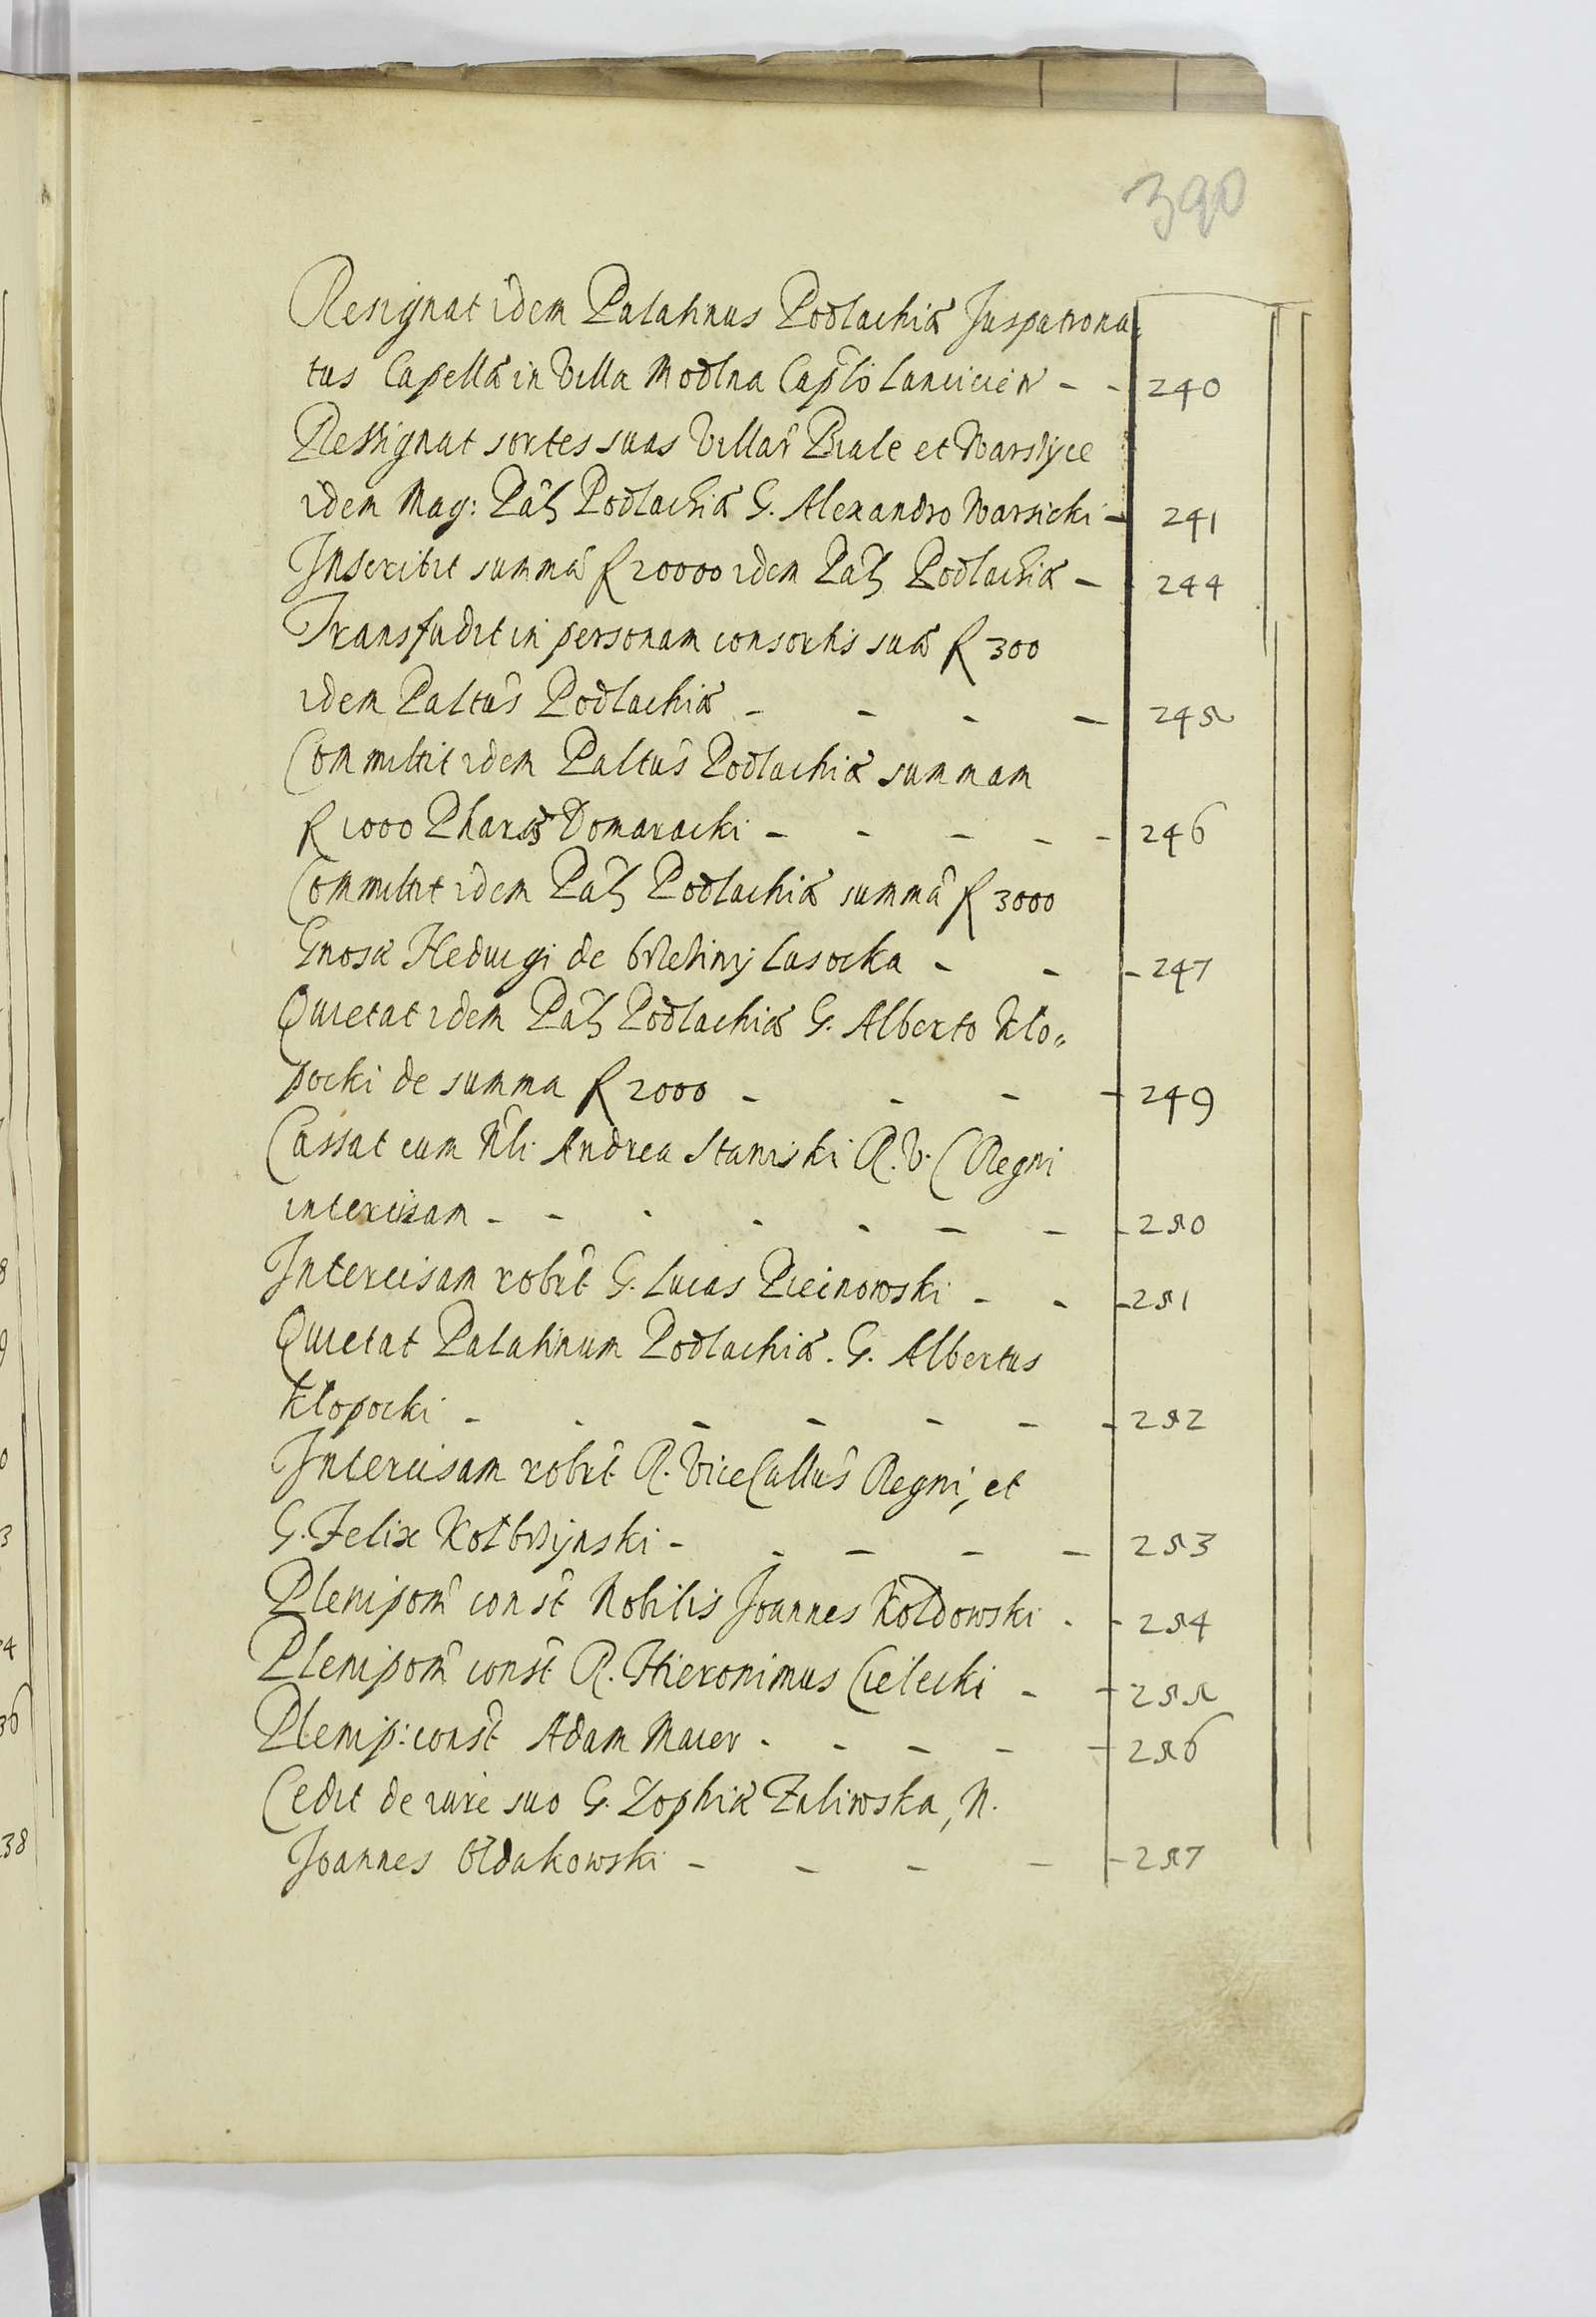 390
Resignat idem Palatinus Podlachiæ Juspatrona:
tus Capellæ in Villa Modlna Caplo Lancicien - - 240
Resignat sortes suas Villar Biale et Warszyce
idem Mag: Pal Podlachiæ G. Alexandro Warsicki - 241
Inscribit summa f 20000 idem Pal Podlachiæ - 244
Transfudit in personam consortis suæ f 300
idem Paltus Podlachiæ - - - - 245
Committit idem Paltus Podlachiæ summam
f 1000 Domaracki - - - - - 246
Committit idem Pal Podlachiæ summa f 3000
Gnosæ Hedvigi de Lasocka - - - 247
Quietat idem Pal Podlachiæ G. Alberto Kło„
pocki de summa f 2000 - - - - 249
Cassat cum Nli Andrea Staniski R. V. C Regni
intercisam - - - - - - - - 250
Intercisam robrt G. Lucas Piecnowski - - - 251
Quietat Palatinum Podlachiæ. G. Albertus
Kłopocki - - - - - - - 252
Intercisam robrt R. ViceCallus Regni, et
G. Felix Kołbrzynski - - - - - 253
Plenipom const Nobilis Joannes Kołdowski - - 254
Plenipom const R. Hieronimus Cielecki - - 255
Plenip: const Adam Maier - - - - - 256
Cedit de iure suo G. Zophiæ Zaliwska, N.
Joannes Ołdakowski - - - - - 257